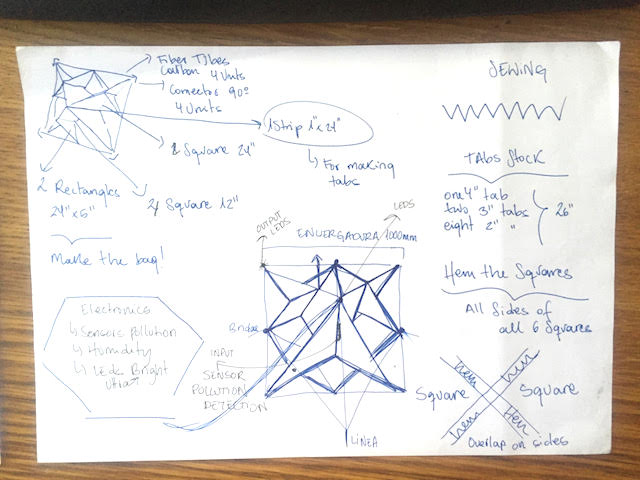 Fiber Tubes
Carbon 4 Units
Connector 90º
4 Units
1 Strip 1" x 24"
↳ For making
tabs
2 Square 24"
2 Rectangles
24" x 5"
4 Square 12"
Make the bag!
Electronics
↳ Sensors pollution
↳ Humidity
↳ Leds Bright
Ultra
OUTPUT
LEDS
LEDS
ENVERGADURA 1000mm
INPUT
SENSOR
POLLUTION
DETECTION
LINEA
SEWING
TABS Stock
one 4" tab
two 3" tabs
eight 2" "
26"
Hem the Squares
All Sides of
all 6 Squares
Square
hem
hem
hem
Hem
Square
Overlap on sides